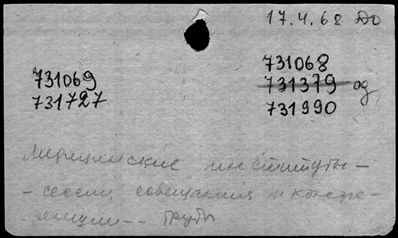 17.4.68 До
731069
731727
731068
731379 од
731990
Медицинские институты -
- сессии, совещания и конфе-
ренции -- Труды